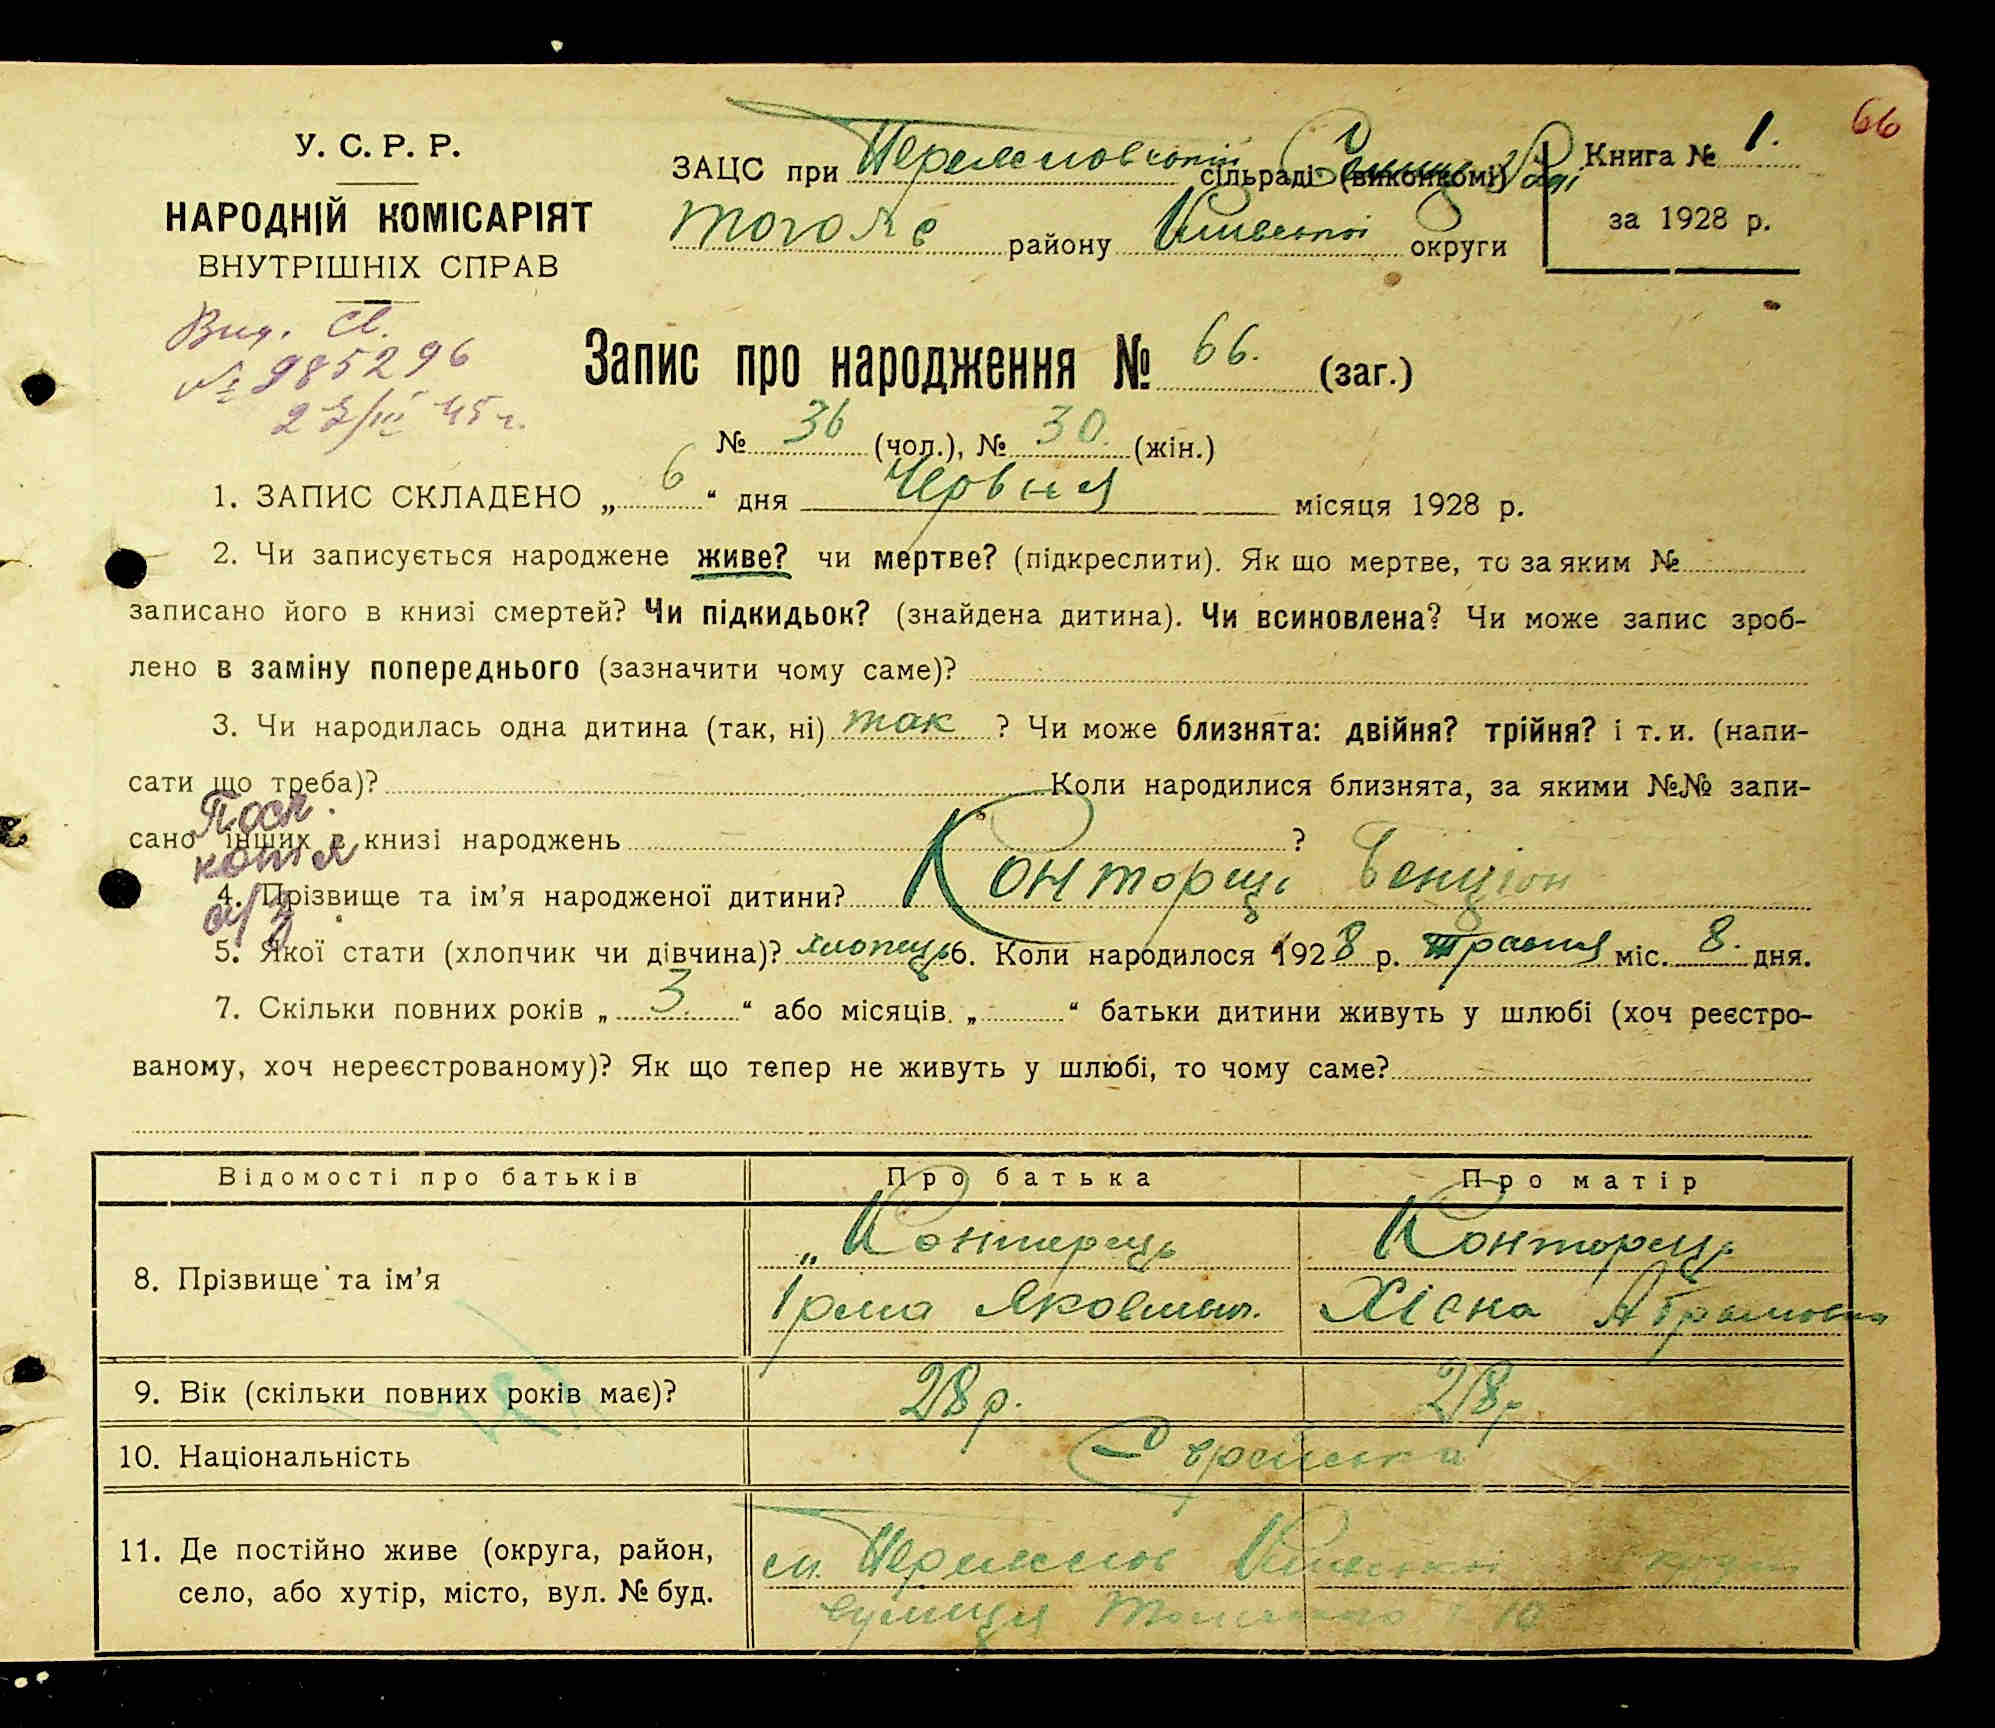 66
У. С. Р. Р.
НАРОДНІЙ КОМІСАРІЯТ
ВНУТРІШНІХ СПРАВ
ЗАЦС при сільраді (виконкомі)
того же району Київської округи
Книга № 1.
за 1928 р.
Вид. св.
№ 985296
23/III 45 г.
Запис про народження № 66. (заг.)
№ 36 (чол.), № 30. (жін.)
1. ЗАПИС СКЛАДЕНО „ 6 “ дня Червня місяця 1928 р.
2. Чи записується народжене живе? чи мертве? (підкреслити). Як що мертве, то за яким №
записано його в книзі смертей? Чи підкидьок? (знайдена дитина). Чи всиновлена? Чи може запис зроб-
лено в заміну попереднього (зазначити чому саме)?
3. Чи народилась одна дитина (так, ні) так ? Чи може близнята: двійня? трійня? і т. и. (напи-
сати що треба)? Коли народилися близнята, за якими №№ запи-
сано інших в книзі народжень ?
Посл.
копія
4. Прізвище та ім'я народженої дитини? Конторець Бенціон
5. Якої стати (хлопчик чи дівчина)? хлопець 6. Коли народилося 1928 р. травня міс. 8. дня.
7. Скільки повних років „ 3. “ або місяців „ “ батьки дитини живуть у шлюбі (хоч реєстро-
ваному, хоч нереєстрованому)? Як що тепер не живуть у шлюбі, то чому саме?
Відомості про батьків Про батька Про матір
8. Прізвище та ім'я
„ Конторець Конторець
Ірма Яковлев. Хієна Абрамовна
9. Вік (скільки повних років має)? 28 р. 28 р.
10. Національність Єврейська
11. Де постійно живе (округа, район,
село, або хутір, місто, вул. № буд.
м. Київської округи
вулиця 10